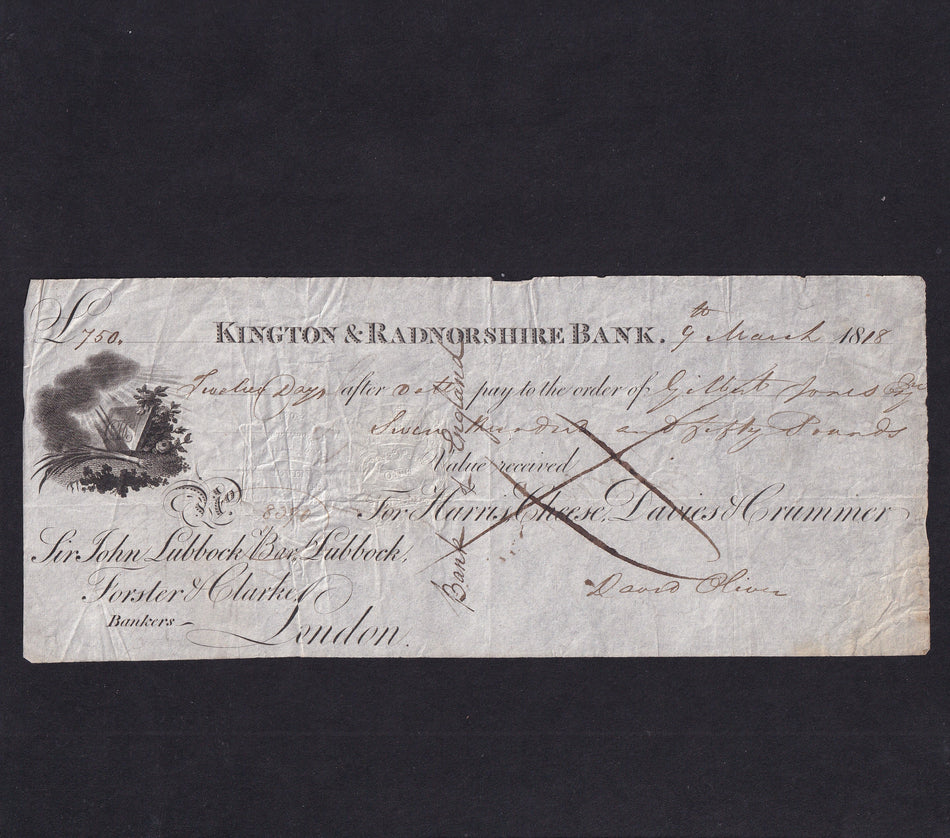 £ 750. KINGTON & RADNORSHIRE BANK. 9th March 1818
Twelve Days after Date pay to the order of Gilbert Jones Esq
Seven Hundred and fifty Pounds
Value received
No
For Harris, Cheese, Davies & Crummer
Sir John Lubbock Bar. Lubbock,
Forster & Clarke,
David Oliver
Bankers
London.
Bank of England